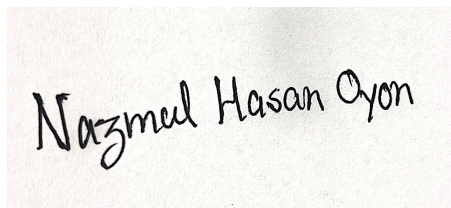 Nazmul Hasan Oyon